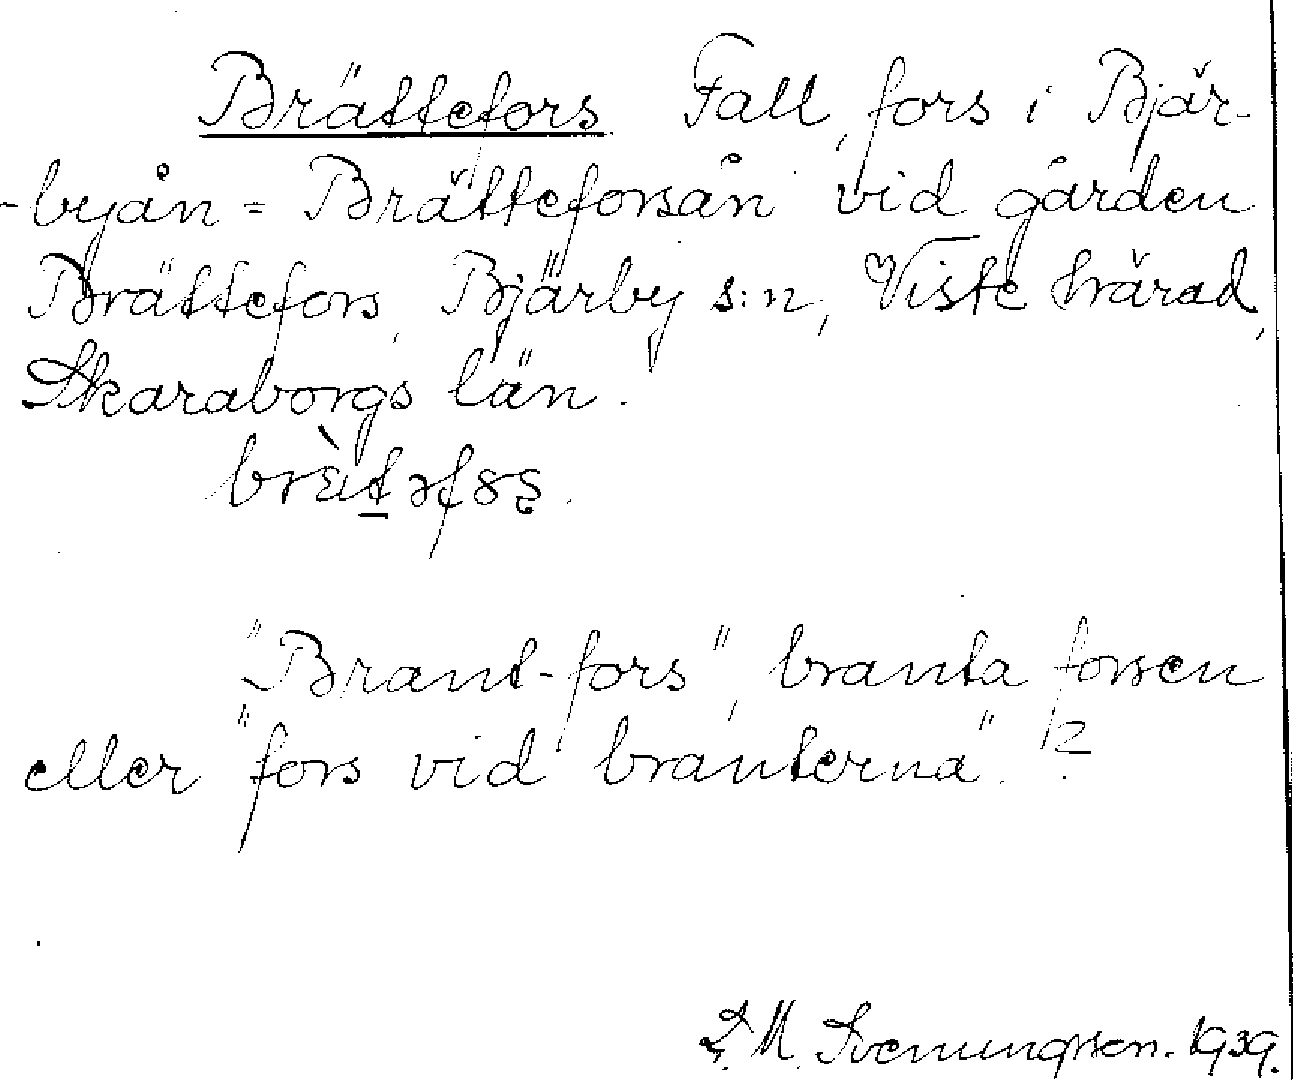 Brättefors Fall, fors i Bjär-
-byån = Brätteforsån vid gården
Brättefors, Bjärby s:n, Viste härad,
Skaraborgs län.
"Brant-fors", branta forsen
eller "fors vid branterna". ?
M. Svenungsson. 1939.